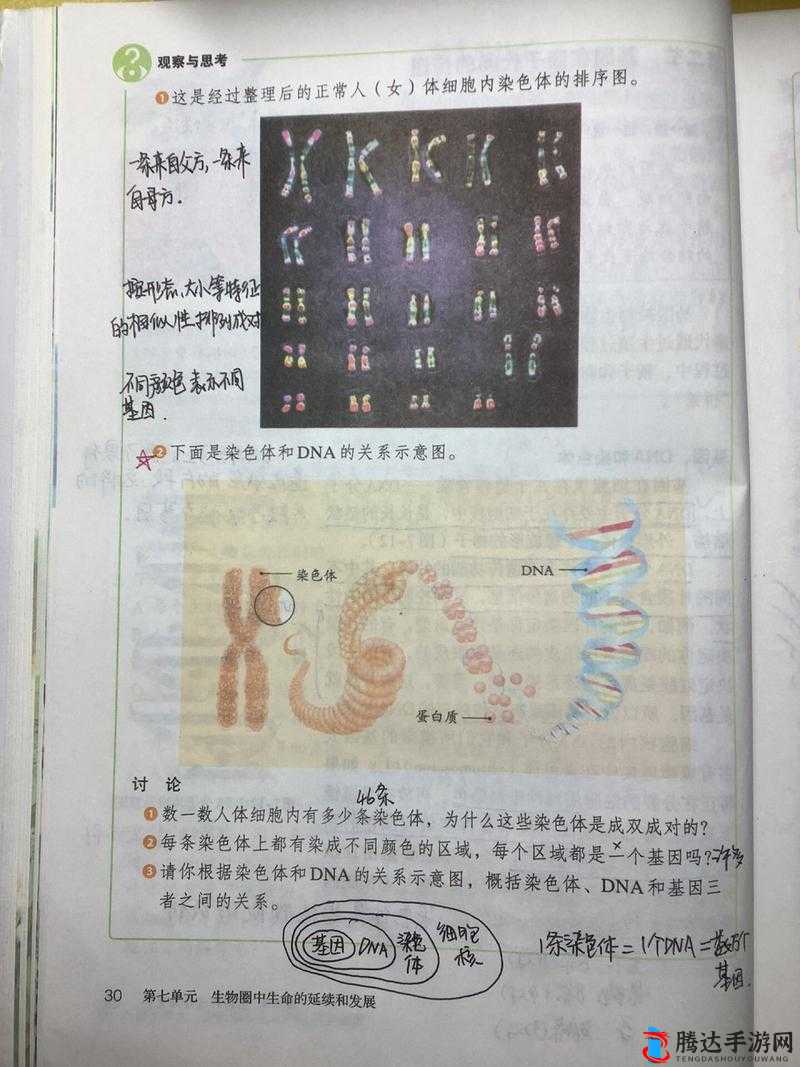 观察与思考
❶这是经过整理后的正常人（女）体细胞内染色体的排序图。
一条来自父方，一条来
自母方．
按形态、大小等特征
的相似性排列成对
不同颜色表示不同
基因．
❷下面是染色体和DNA的关系示意图。
染色体
DNA
蛋白质
讨 论
46条
❶数一数人体细胞内有多少条染色体，为什么这些染色体是成双成对的？
❷每条染色体上都有染成不同颜色的区域，每个区域都是一个基因吗？许多
❸请你根据染色体和DNA的关系示意图，概括染色体、DNA和基因三
者之间的关系。
基因 DNA 染色体 细胞核
1条染色体＝1个DNA＝数万个
基因．
30 第七单元 生物圈中生命的延续和发展
腾达手游网
TENGDASHOUYOUWANG